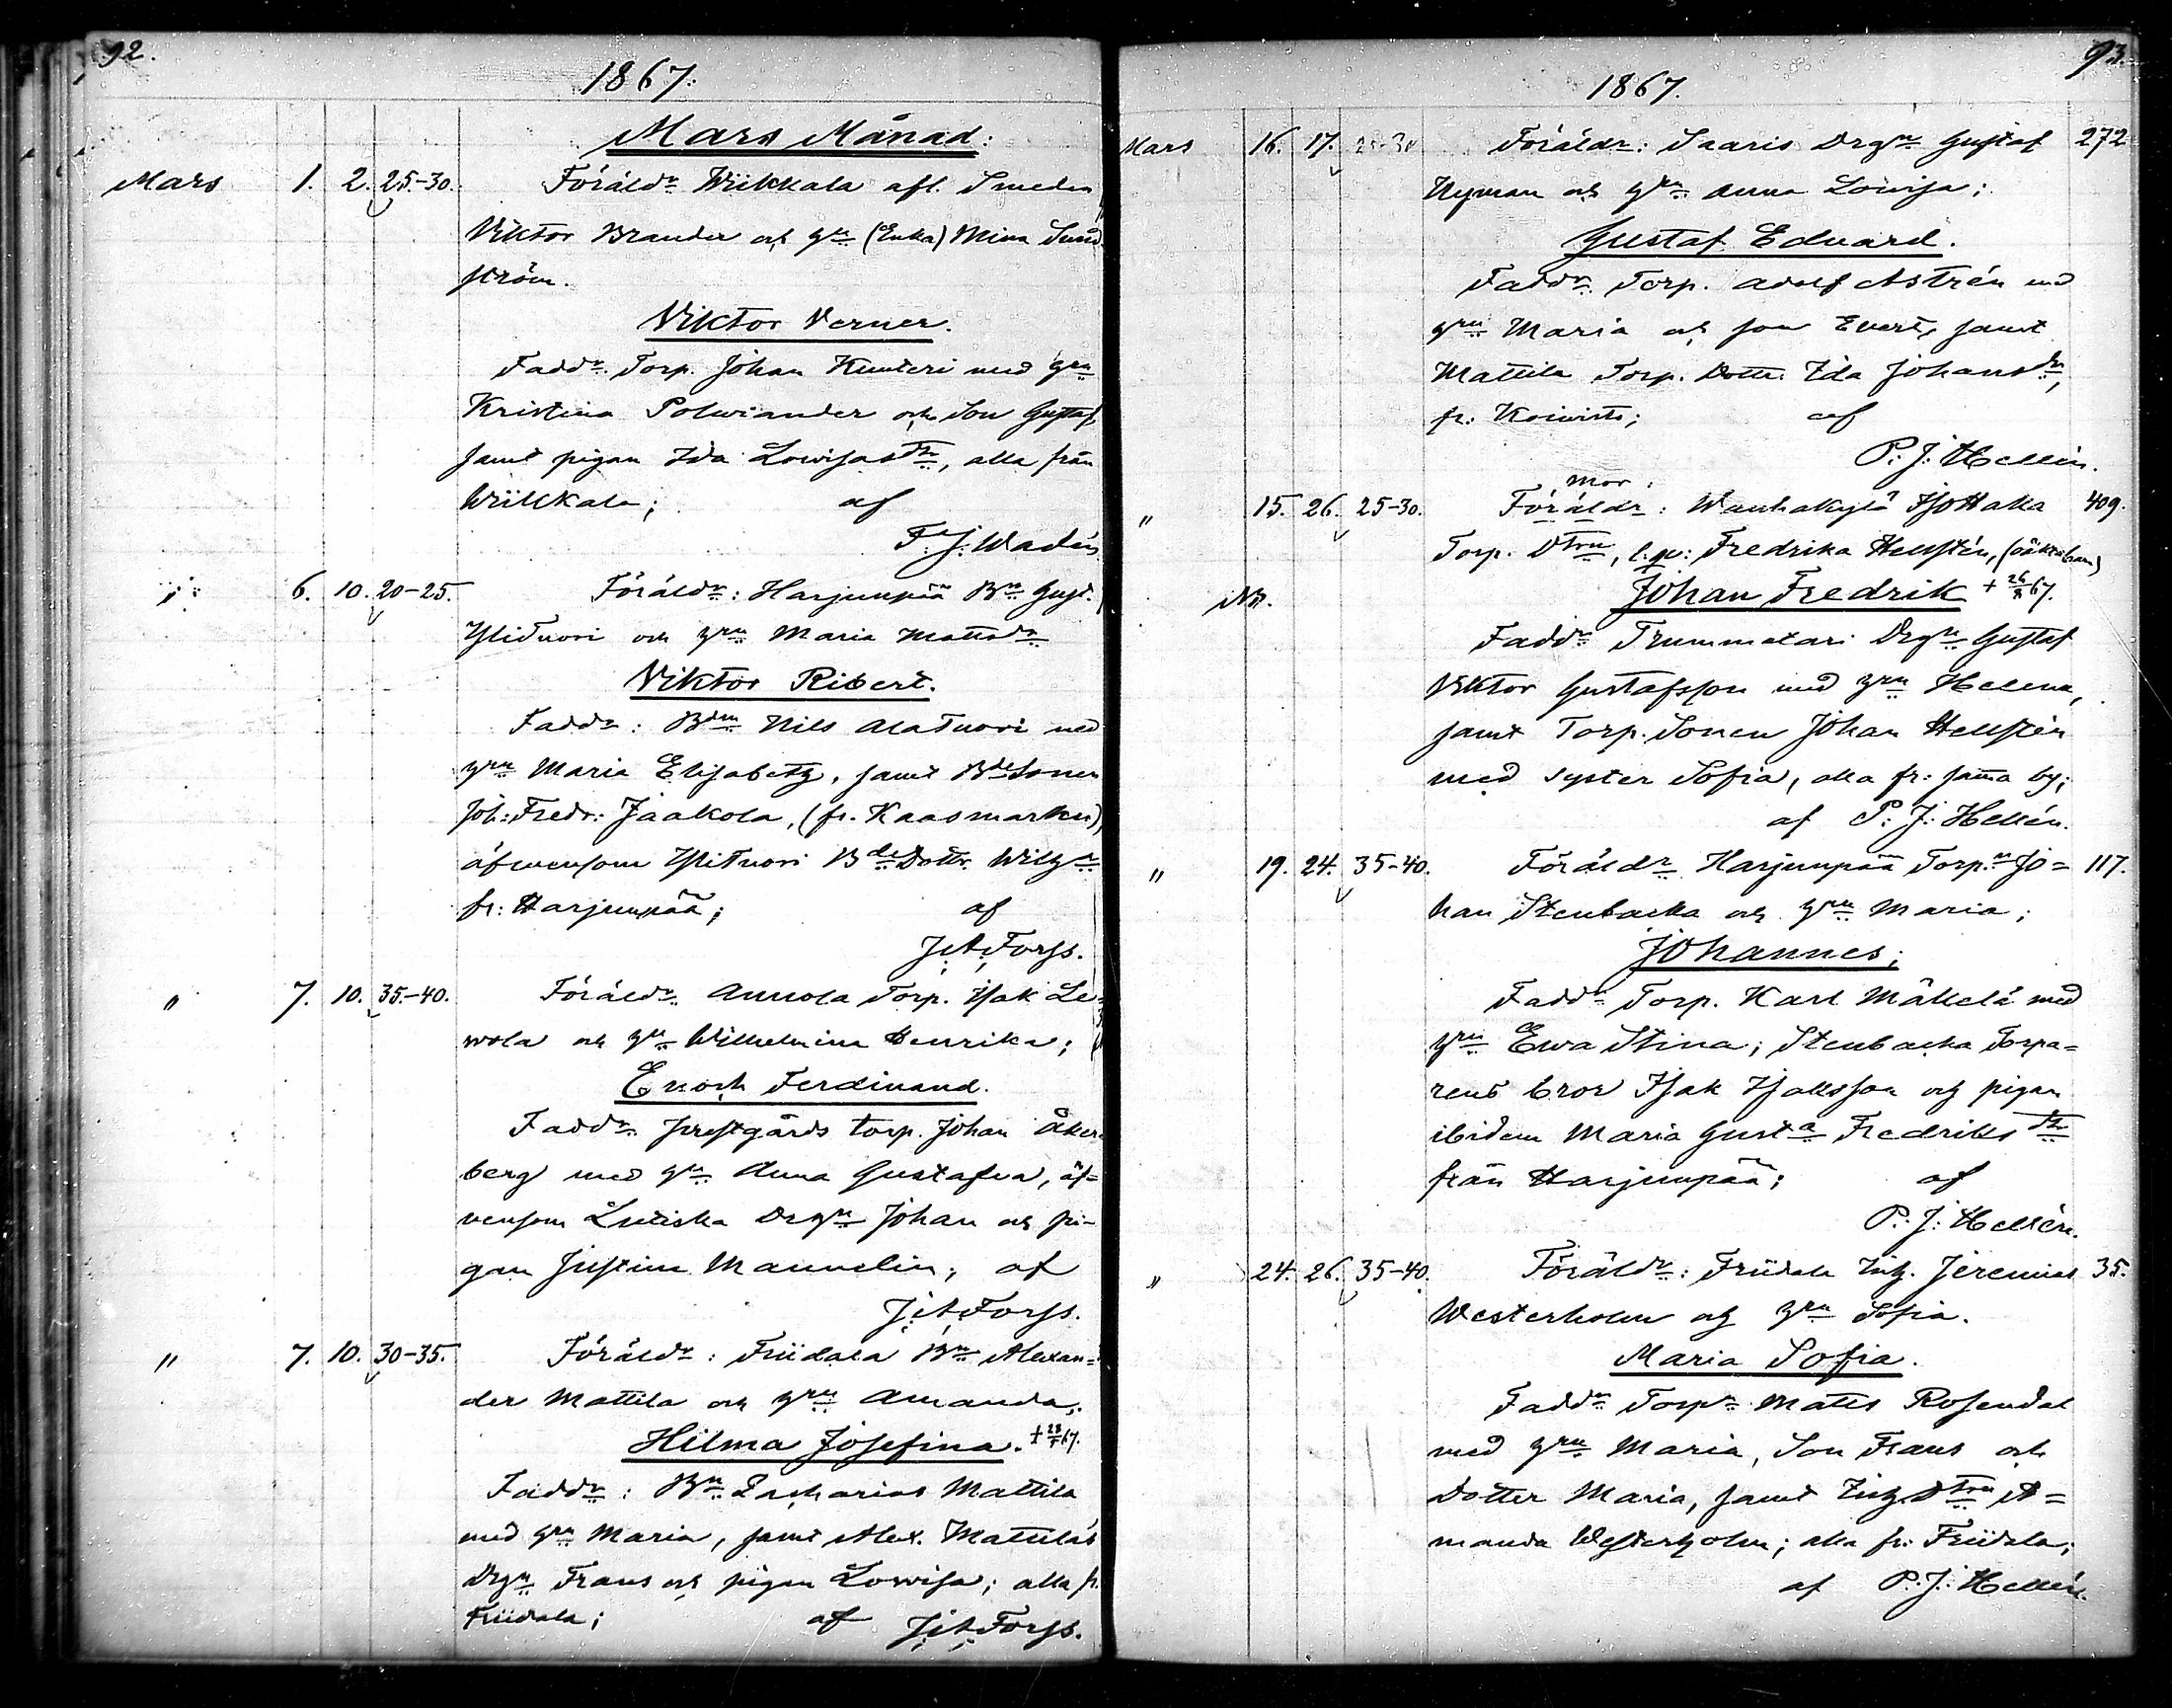 92.
1867.
Mars Månad:
Mars 1. 2. 25-30. Föräldr Wiikkala afl. Smeden
Viktor Brander och hn (Enka) Mina Sund
ström.
Viktor Verner.
Faddr. Torp. Johan Kunteri med hru
Kristina Polviander och Son Gustaf,
samt pigan Ida Lowisasdtr, alla från
Wiikkala; af
F. J. Wadén
" 6. 10. 20-25. Föräldr: Harjunpää Bn Gust.
Ylituori och hru Maria Mattsdr
Viktor Ribert.
Faddr: Bdn Nils Alatuori med
hru Maria Elisabeth, samt Bdesonen
Joh: Fredr: Jaakola, (fr. Kaasmarku),
äfvensom Ylituori Bde Dottr. Wilhna
fr: Harjunpää; af
J. A. Forss.
" 7. 10. 35-40. Föräldr. Annola Torp. Isak Le-
wola och hu Wilhelmina Henrika;
Enoch Ferdinand.
Faddr. prestgårds torp. Johan Åker-
berg med hu Anna Gustafva, äf-
vensom Lutiska Drgn Johan och pi-
gan Justina Mannelin; af
J. A. Forss.
" 7. 10. 30-35. Föräldr: Friidala Bn Alexan-
der Mattila och hru Amanda;
Hilma Josefina. + 67.
Faddr: Bn Zacharias Mattila
med hru Maria, samt Alex. Mattilas
Drgn Frans och pigan Lowisa; alla fr.
Friidala; af J. A. Forss.
93.
1867.
Mars 16. 17. 25-30 Föräldr: Saaris Drgn Gustaf 272
Nyman och hru Anna Lowisa;
Gustaf Edvard.
Faddr. Torp. Adolf Astrén med
hru Maria och son Evert, samt
Mattila Torp. Dottr. Ida Johansdr,
fr. Koivisto; af
P. J. Hellén.
mor:
" 15. 26. 25-30. Föräldr: Wanhakylä Isottalla 409.
Torp. Dtrn, l.p: Fredrika Hellstén, (oäkta barn)
No. Johan Fredrik + 26 67.
Faddr Trummatari Drgn Gustaf
Viktor Gustafsson med hru Helena,
samt Torp. Sonen Johan Hellstén
med syster Sofia, alla fr: samma by;
af P. J. Hellén.
" 19. 24. 35-40. Föräldr Harjunpää Torp.n Jo= 117.
han Stenbacka och hru Maria;
Johannes;
Faddr Torp. Karl Mäkelä med
hru Ewa Stina; Stenbacka Torpa=
rens bror Isak Isaksson och pigan
ibidem Maria Gusta Fredriksdtr
från Harjunpää; af
P. J. Hellén.
" 24. 26. 35-40. Föräldr: Friidala Inh. Jeremias 35.
Westerholm och hru Sofia.
Maria Sofia.
Faddr Torpn Matts Rosendal
med hru Maria, Son Frans och
Dotter Maria, samt Inh. Dtrn A=
manda Westerholm; alla fr: Friidala;
af P. J. Hellén.